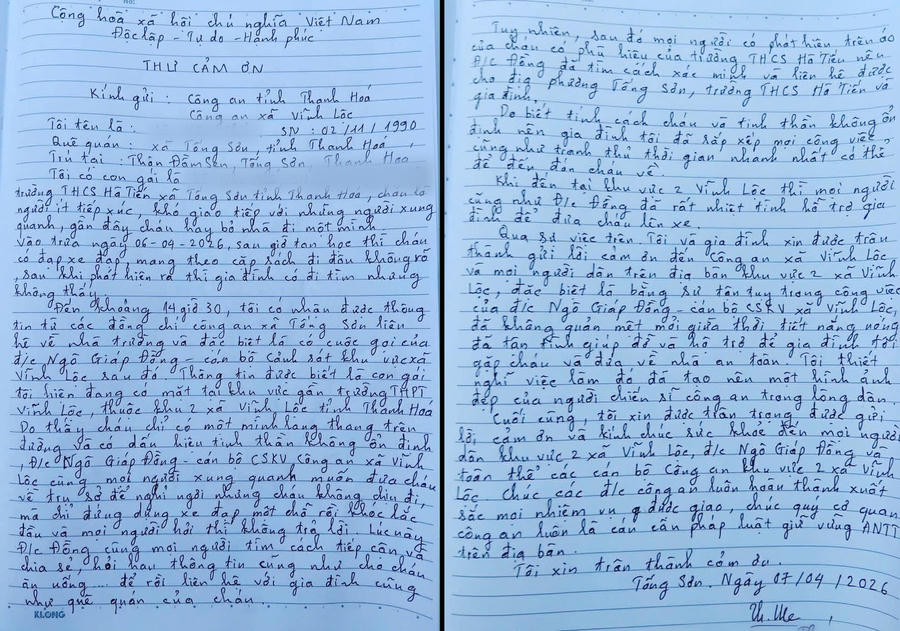 Cộng hoà xã hội chủ nghĩa Việt Nam
Độc lập - Tự do - Hạnh phúc
THƯ CẢM ƠN
Kính gửi : Công an tỉnh Thanh Hoá
Công an xã Vĩnh Lộc
Tôi tên là : SN : 02/11/1990
Quê quán : xã Tống Sơn, tỉnh Thanh Hoá
Trú tại : Thôn Đầm Sen, Tống Sơn, Thanh Hoá
Tôi có con gái là
trường THCS Hà Tiến xã Tống Sơn tỉnh Thanh Hoá, cháu là
người ít tiếp xúc, khó giao tiếp với những người xung
quanh, gần đây cháu hay bỏ nhà đi một mình.
Vào trưa ngày 06-04-2026, sau giờ tan học thì cháu
có đạp xe đạp mang theo cặp sách đi đâu không rõ
, sau khi phát hiện ra thì gia đình có đi tìm nhưng
không thấy.
Đến khoảng 14 giờ 30, tôi có nhận được thông
tin từ các đồng chí công an xã Tống Sơn liên
hệ về nhà trường và đặc biệt là có cuộc gọi của
đ/c Ngô Giáp Đồng - cán bộ Cảnh sát khu vực xã
Vĩnh Lộc sau đó. Thông tin được biết là con gái
tôi hiện đang có mặt tại khu vực gần trường THPT
Vĩnh Lộc, thuộc khu 2 xã Vĩnh Lộc tỉnh Thanh Hoá
Do thấy cháu chỉ có một mình lang thang trên
đường và có dấu hiệu tinh thần không ổn định
, Đ/c Ngô Giáp Đồng - cán bộ CSKV Công an xã Vĩnh
Lộc cùng mọi người xung quanh muốn đưa cháu
về trụ sở để nghỉ ngơi nhưng cháu không chịu đi,
mà chỉ đứng dựng xe đạp một chỗ rồi khóc lắc
đầu và mọi người hỏi thì không trả lời. Lúc này
Đ/c Đồng cùng mọi người tìm cách tiếp cận và
chia sẻ, hỏi han thông tin cũng như cho cháu
ăn uống ... để rồi liên hệ với gia đình cũng
như quê quán của cháu.
KLONG
Tuy nhiên, sau đó mọi người có phát hiện trên áo
của cháu có phù hiệu của trường THCS Hà Tiến nên
Đ/c Đồng đã tìm cách xác minh và liên hệ được
cho địa phương Tống Sơn, trường THCS Hà Tiến và
gia đình.
Do biết tính cách cháu và tinh thần không ổn
định nên gia đình tôi đã sắp xếp mọi công việc,
cũng như tranh thủ thời gian nhanh nhất có thể
để đến đón cháu về.
Khi đến tại khu vực 2 Vĩnh Lộc thì mọi người
cũng như Đ/c Đồng đã rất nhiệt tình hỗ trợ gia
đình để đưa cháu lên xe.
Qua sự việc trên. Tôi và gia đình xin được trân
thành gửi lời cảm ơn đến Công an xã Vĩnh Lộc
và mọi người dân trên địa bàn khu vực 2 xã Vĩnh
Lộc, đặc biệt là bằng sự tận tuỵ trong công việc
của đ/c Ngô Giáp Đồng - cán bộ CSKV xã Vĩnh Lộc,
đã không quản mệt mỏi giữa thời tiết nắng nóng
đã tận tình giúp đỡ và hỗ trợ để gia đình tôi
gặp cháu và đưa về nhà an toàn. Tôi thiết
nghĩ việc làm đó đã tạo nên một hình ảnh
đẹp của người chiến sĩ công an trong lòng dân.
Cuối cùng, tôi xin được thân trọng được gửi
lời cảm ơn và kính chúc sức khoẻ đến mọi người
dân khu vực 2 xã Vĩnh Lộc, đ/c Ngô Giáp Đồng và
toàn thể các cán bộ Công an khu vực 2 xã Vĩnh
Lộc. Chúc các đ/c công an luôn hoàn thành xuất
sắc mọi nhiệm vụ được giao, chúc quý cơ quan
công an luôn là cán cân pháp luật giữ vững ANTT
trên địa bàn.
Tôi xin trân thành cảm ơn.
Tống Sơn. Ngày 07/04/2026